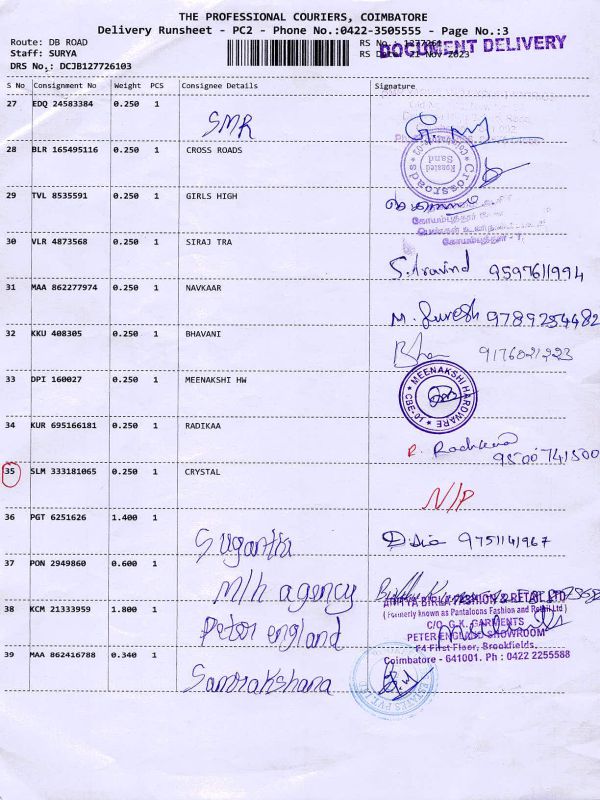 THE PROFESSIONAL COURIERS, COIMBATORE
Delivery Runsheet - PC2 - Phone No.:0422-3505555 - Page No.:3
Route: DB ROAD RS No.:
DOCUMENT DELIVERY
Staff: SURYA RS Date: 21 Nov 2023
DRS No.: DCJB127726103
S No Consignment No Weight PCS Consignee Details Signature
27 EDQ 24583384 0.250 1
SMR
28 BLR 165495116 0.250 1 CROSS ROADS
Crossroads
29 TVL 8535591 0.250 1 GIRLS HIGH
கோயம்புத்தூர்
30 VLR 4873568 0.250 1 SIRAJ TRA
S. Aravind 9597611994
31 MAA 862277974 0.250 1 NAVKAAR
M. Suresh 9789254482
32 KKU 408305 0.250 1 BHAVANI
9176021223
33 DPI 160027 0.250 1 MEENAKSHI HW
MEENAKSHI HARDWARE
CBE-01
34 KUR 695166181 0.250 1 RADIKAA
R. 9500741500
35 SLM 333181065 0.250 1 CRYSTAL
N/P
36 PGT 6251626 1.400 1
Sugantha 9751141967
37 PON 2949860 0.600 1
M/h agency
ADITYA BIRLA FASHION & RETAIL LTD
(Formerly known as Pantaloons Fashion and Retail Ltd)
38 KCM 21333959 1.800 1
Peter england
C/O G.K. GARMENTS
PETER ENGLAND SHOWROOM
First Floor, Brookfields,
39 MAA 862416788 0.340 1
Coimbatore - 641001. Ph : 0422 2255588
Samrakshana